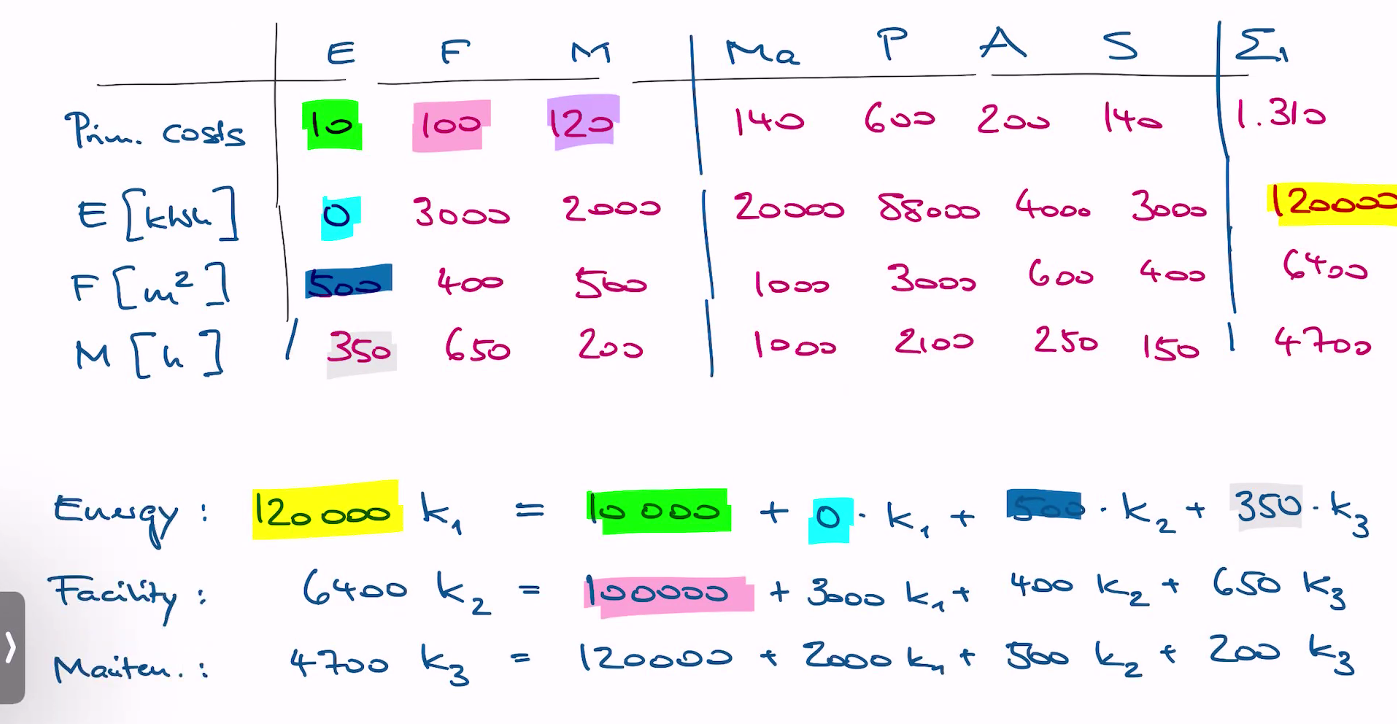 E F M Ma P A S Σ1
Prim. costs 10 100 120 140 600 200 140 1.310
E [kWh] 0 3000 2000 20000 88000 4000 3000 120000
F [m²] 500 400 500 1000 3000 600 400 6400
M [h] 350 650 200 1000 2100 250 150 4700
Energy : 120 000 k₁ = 10 000 + 0 · k₁ + 500 · k₂ + 350 · k₃
Facility : 6400 k₂ = 100000 + 3000 k₁ + 400 k₂ + 650 k₃
Maiten. : 4700 k₃ = 120000 + 2000 k₁ + 500 k₂ + 200 k₃